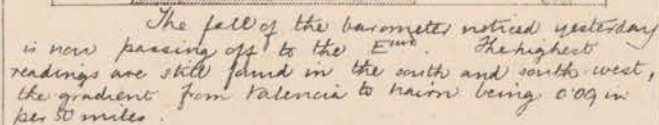 The fall of the barometer noticed yesterday
is now passing off to the Eᵂᵈ. The highest
readings are still found in the south and south west,
the gradient from Valencia to Nairn being 0.09 in
per 50 miles.